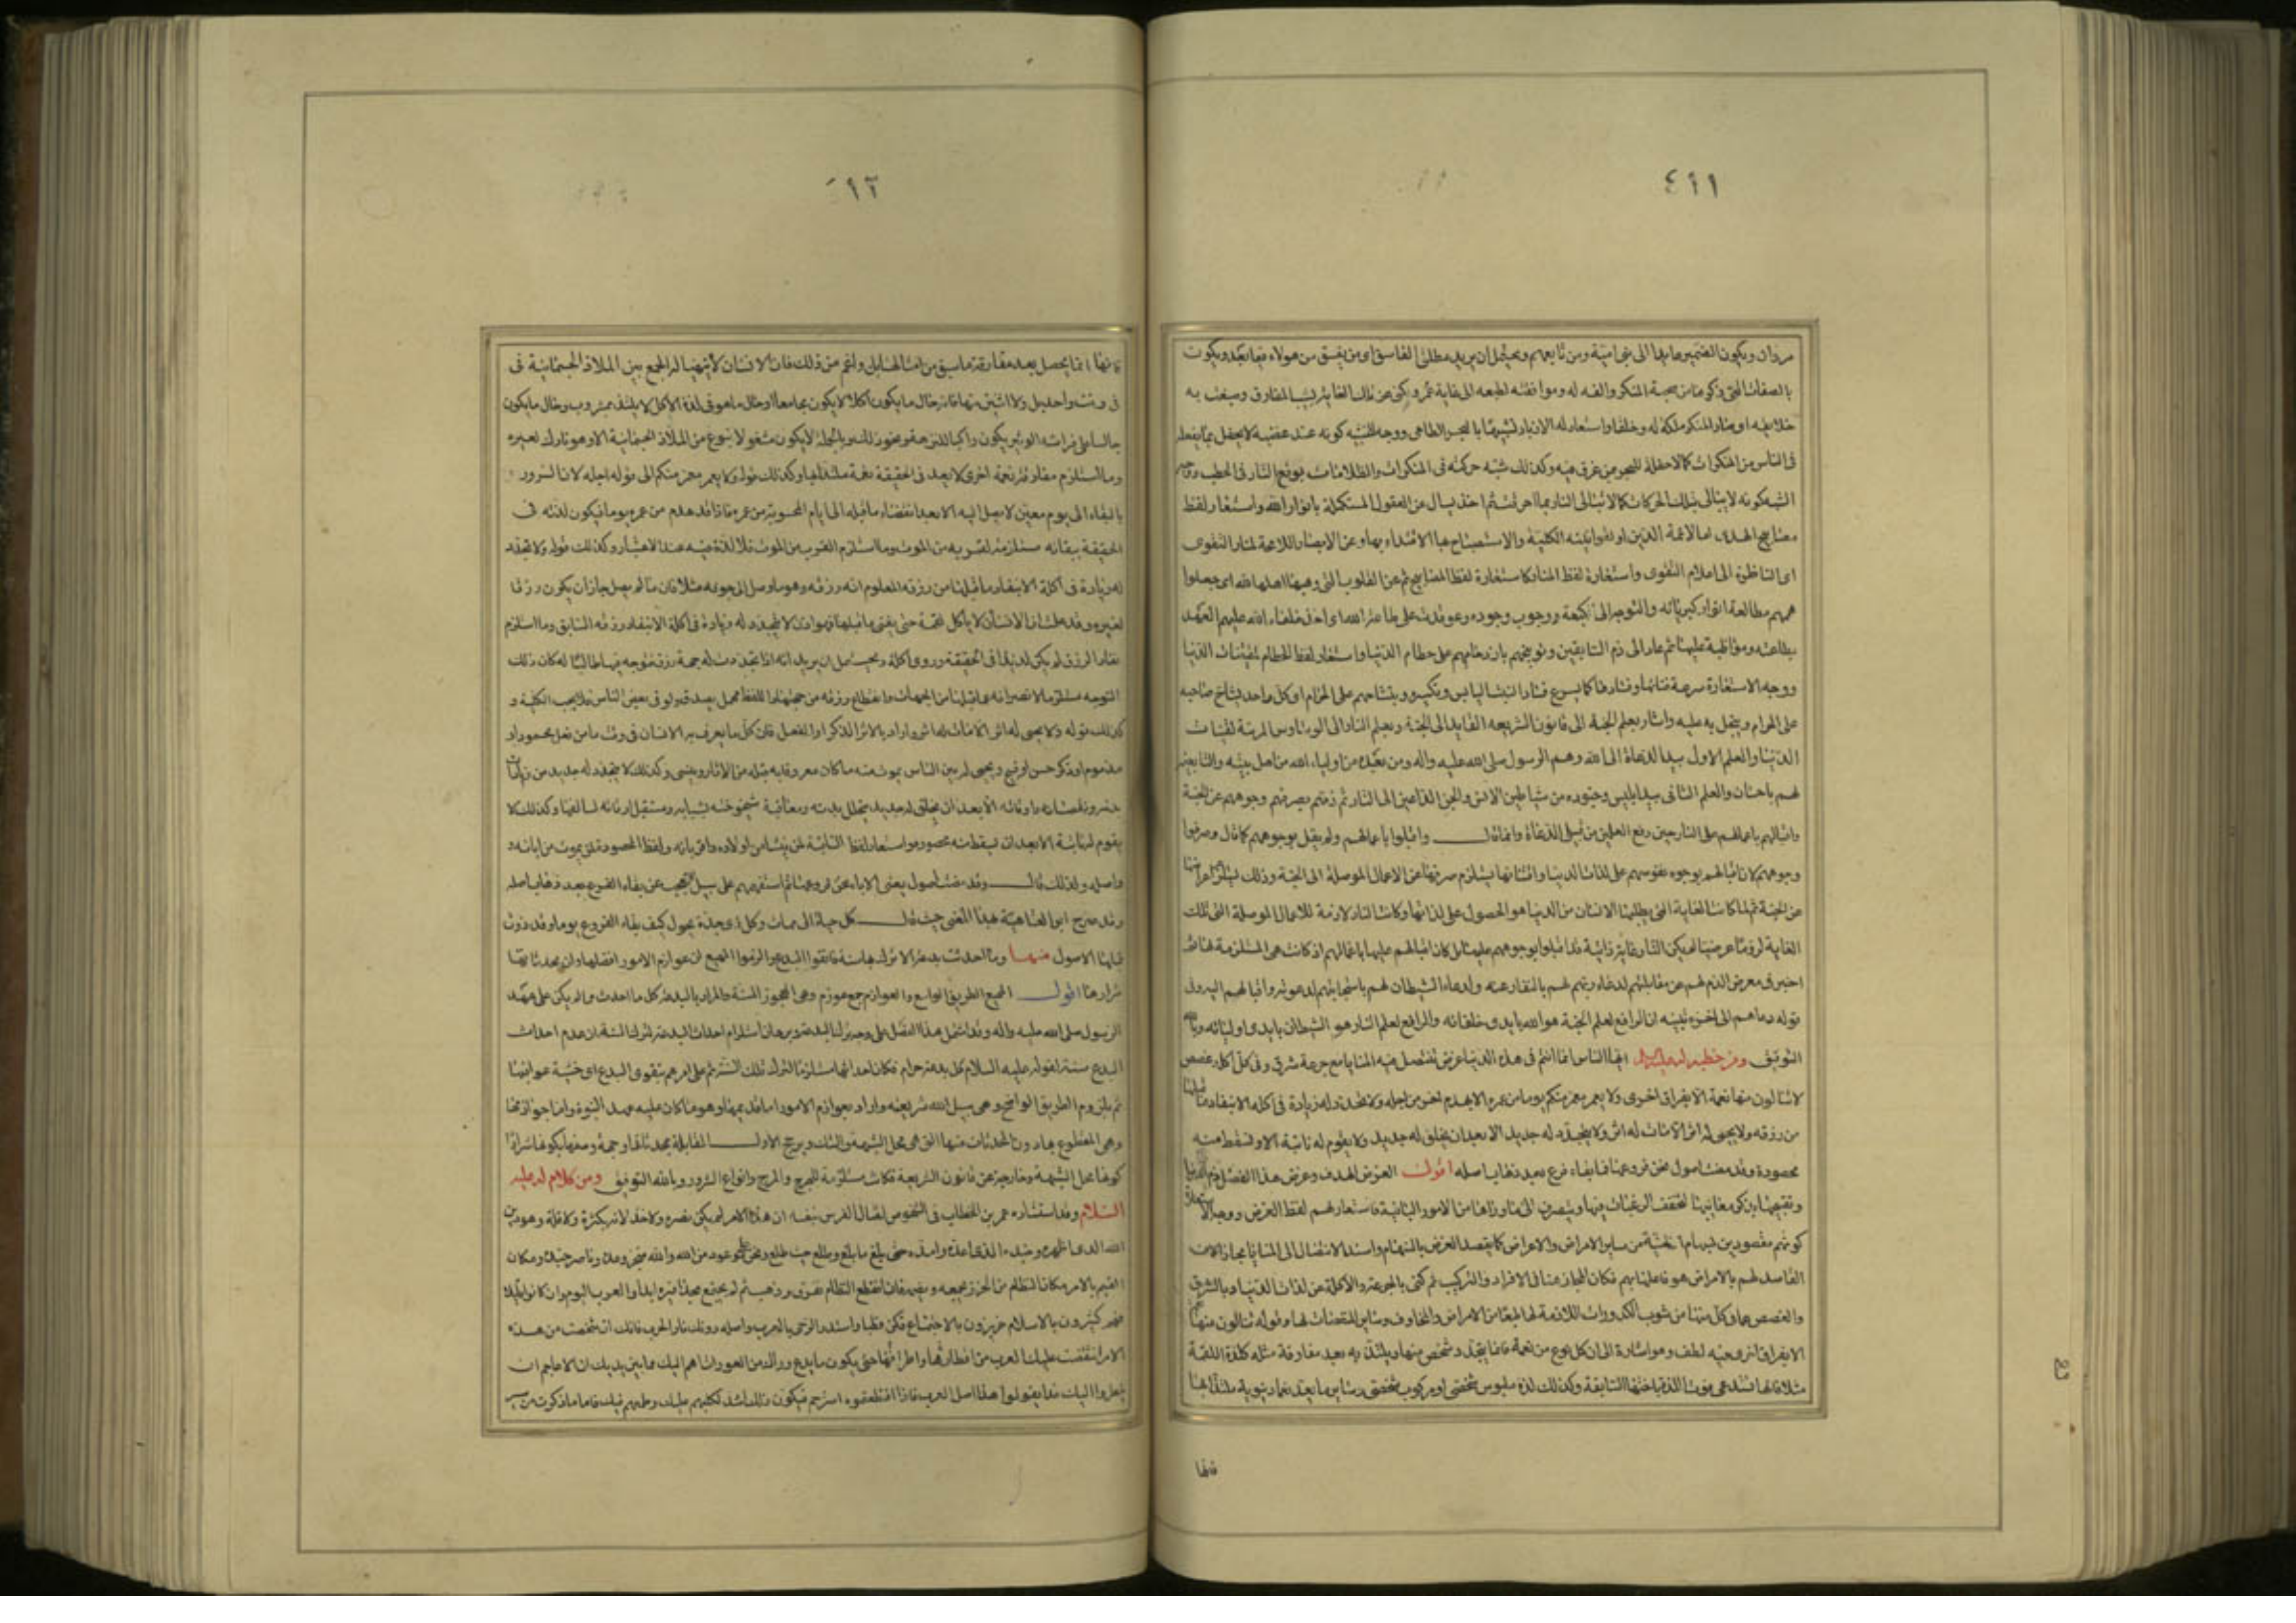 ٤١١
مروان ويكون الضمير عايدا الى بنى امية ومن تابعهم ويحتمل ان يريد مطلق الفاسق اى من يفسق من هولاء فيما بعد ويكون
بالصفات التى ذكرها من صحبة المنكر والفه له وموافقته لطبعه الى غاية عمره وكنى عن تلك الغاية بشيب المفارق وصبغت به
خلايقه اى صار المنكر ملكة له وخلقا واستعار له الازباد تشبيها بالبحر الطامى ووجه الشبه كونه عند غضبه لا يحفل بما يفعله
فى الناس من المنكرات كما لا حفلة للبحر بمن غرق فيه وكذلك شبه حركته فى المنكرات والظلامات بوقع النار فى الحطب ووجه
الشبه كونه لا يبالى بتلك الحركات كما لا تبالى النار بما احرقت ثم اخذ يسال عن العقول المستكملة بانوار الله واستعار لفظ
مصابيح الهدى اما لائمة الدين او لقوانينه الكلية والاستصباح بها الاقتداء بها وعن الابصار اللامحة لمنار التقوى
اى الناظرة الى اعلام التقوى واستعارة لفظ المنار كاستعارة لفظ المصابيح ثم عن القلوب التى وهبها اهلها لله اى جعلوا
همهم مطالعة انوار كبريائه والتوجه الى كعبة ووجوب وجوده وعوقدت على طاعة الله اى اخذ خلفاء الله عليهم العهد
بطاعته ومواظبة عليها ثم عاد الى ذم السابقين وتوبيخهم بازدحامهم على حطام الدنيا واستعار لفظ الحطام لمقتنيات الدنيا
ووجه الاستعارة سرعة فنائها وفسادها كما يسرع فساد النبت اليابس وتكسره وبتشاحهم على الحرام اى كل واحد يشاح صاحبه
على الحرام ويبخل به عليه واشار بعلم الجنة الى قانون الشريعة القايد الى الجنة وبعلم النار الى الوساوس المزينة لقينات
الدنيا والعلم الاول بيد الدعاة الى الله وهم الرسول صلى الله عليه واله ومن بعده من اولياء الله من اهل بيته والتابعين
لهم باحسان والعلم الثانى بيد ابليس وجنوده من شياطين الانس والجن الداعين الى النار ثم ذمهم بصرفهم وجوههم عن الجنة
واقبالهم باعمالهم على النار حين رفع العلمين من قبل الدعاة وانما قال واقبلوا باعمالهم ولم يقل بوجوههم كما قال وصرفوا
وجوههم لان اقبالهم بوجوه نفوسهم على لذات الدنيا واقتنائها يستلزم صرفها عن الاعمال الموصلة الى الجنة وذلك يستلزم اعراضها
عن الجنة ثم لما كانت الغاية التى يطلبها الانسان من الدنيا هو الحصول على لذاتها وكانت النار لازمة للاعمال الموصلة الى تلك
الغاية لزوما عرضيا لم يكن النار غاية ذاتية قد اقبلوا بوجوههم عليها بل كان اقبالهم عليها باعمالهم اذ كانت هى المستلزمة لها ثم
اخبر فى معرض الذم لهم عن مقابلتهم لدعاء ربهم لهم بالنفار عنه ولدعاء الشيطان لهم باستجابتهم لدعوته واقبالهم اليه وفى
قوله دعاهم الى اخره تنبيه ان الرافع لعلم الجنة هو الله بايدى خلفائه والرافع لعلم النار هو الشيطان بايدى اوليائه وبالله
التوفيق ومن خطبة له عليه السلام ايها الناس انما انتم فى هذه الدنيا غرض تنتضل فيه المنايا مع كل جرعة شرق وفى كل اكلة غصص
لا تنالون منها نعمة الا بفراق اخرى ولا يعمر معمر منكم يوما من عمره الا بهدم اخر من اجله ولا تجدد له زيادة فى اكله الا بنفاد ما قبلها
من رزقه ولا يحيى له اثر الا مات له اثر ولا يتجدد له جديد الا بعد ان يخلق له جديد ولا يقوم له نابتة الا وتسقط منه
محصودة وقد مضت اصول نحن فروعها فما بقاء فرع بعد ذهاب اصله اقول الغرض الهدف وغرض هذا الفصل ذم الدنيا
وتقبيحها بذكر معايبها لتخفف الرغبات فيها وينصرف الى ما وراءها من الامور الباقية فاستعار لهم لفظ الغرض ووجه الاستعارة
كونهم مقصودين بسهام المنية من ساير الامراض والاعراض كما يقصد الغرض بالسهام واسند الانتضال الى المنايا مجازا لان
القاصد لهم بالامراض هو فاعلها بهم فكان المجاز هنا فى الافراد والتركيب ثم كنى بالجرعة والاكلة عن لذات الدنيا وبالشرق
والغصص عما فى كل منها من شوب الكدورات اللازمة لها طبعا من الامراض والمخاوف وساير المنغصات لها وقوله لا تنالون منها نعمة
الا بفراق اخرى فيه لطف وهو اشارة الى ان كل نوع من نعمة فانما يتجدد شخص منها ويلتذ به بعد مفارقة مثله كلذة اللقمة
مثلا فانها تستدعى فوت اللذة باختها السابقة وكذلك لذة ملبوس شخصى او مركوب شخصى وساير ما يعد نعما دنيوية ملتذا بها
فانها
١٢
فانها انما يحصل بعد مفارقة ما سبق من امثالها بل واعم من ذلك فان الانسان لا يتهيا له الجمع بين الملاذ الجسمانية فى
فى وقت واحد بل ولا اثنين منها فانه حال ما يكون اكلا لا يكون مجامعا او حال ما هو فى لذة الاكل لا يلتذ بمشروب وحال ما يكون
جالسا على فراشه الوثير يكون راكبا للنزهة ونحو ذلك وبالجملة لا يكون مشغولا بنوع من الملاذ الجسمانية الا وهو تارك لغيره
وما استلزم مفارقة نعمة اخرى لا يعد فى الحقيقة نعمة ملتذا بها وكذلك قوله ولا يعمر معمر منكم الى قوله اجله لان السرور
بالبقاء الى يوم معين لا يصل اليه الا بعد انقضاء ما قبله الى ايام المحسوبة من عمره فاذا قد هدم من عمره يوما فيكون لذته فى
الحقيقة ببقائه مستلزمة لقربه من الموت وما استلزم القرب من الموت فلا لذة فيه عند الاعتبار وكذلك قوله ولا تجدد
له زيادة فى اكله الا بنفاد ما قبلها من رزقه المعلوم انه رزقه وهو ما وصل الى جوفه مثلا فان ما لم يصل جاز ان يكون رزقا
لغيره وقد علمت ان الانسان لا ياكل لقمة حتى يفنى ما قبلها فهو اذن لا يتجدد له زيادة فى اكله الا بنفاد رزقه السابق وما استلزم
نفاد الرزق لم يكن لذيذا فى الحقيقة وروى اكلة ويحتمل ان يريد انه اذا تجددت له جهة رزق فتوجه فيها طالبا له كان ذلك
التوجه مستلزما لانصرافه عما قبلها من الجهات وانقطاع رزقه من جهتها واللفظ مهمل يصدق ولو فى بعض الناس فلا يجب الكلية و
كذلك قوله ولا يحيى له اثر الا مات له اثر واراد بالاثر الذكر او الفعل فان كل ما يعرف به الانسان فى وقت ما من فعل محمود او
مذموم او ذكر حسن او قبيح ويحيى له بين الناس يموت منه ما كان معروفا به قبله من الاثار وينسى وكذلك لا يتجدد له جديد من زيادات
يقوم له نابتة الا بعد ان تسقط منه محصودة واستعار لفظ النابتة لمن ينشا من اولاده واقربائه ولفظ المحصودة لمن يموت من ابائه و
واصله ولذلك قال وقد مضت اصول يعنى الاباء نحن فروعها ثم استفهم على سبيل التعجب عن بقاء الفرع بعد ذهاب اصله
وقد صرح ابو العتاهية بهذا المعنى حيث قال كل حياة الى ممات وكل ذى جدة يحول كيف بقاء الفروع يوما وقد ذوت
قبلها الاصول منها وما احدثت بدعة الا ترك بها سنة فاتقوا البدع والزموا المهيع ان عوازم الامور افضلها وان محدثاتها
شرارها اقول المهيع الطريق الواسع والعوازم جمع عوزم وهى العجوز المسنة والمراد بالبدعة كل ما احدث ولم يكن على عهد
الرسول صلى الله عليه واله وقد اشتمل هذا الفصل على وجه ترك البدعة وبرهان استلزام احداث البدعة لترك السنة ان عدم احداث
البدع سنة لقوله عليه السلام كل بدعة حرام فكان احداثها مستلزما لترك تلك السنة ثم على امرهم بتقوى البدع اى خشية عواقبها
ثم بلزوم الطريق الواضح وهى سبيل الله شريعته واراد بعوازم الامور اما قديمها وهو ما كان عليه عهد النبوة واما جوازمها
وهى المقطوع بها دون المحدثات منها التى هى محل الشبهة والشك ويرجح الاول المقابلة بمحدثاتها وجهة وصفها بكونها شرارا
كونها محل الشبهة وخارجة عن قانون الشريعة فكانت مستلزمة للهرج والمرج وانواع الشرور وبالله التوفيق ومن كلام له عليه
السلام وقد استشاره عمر بن الخطاب فى الشخوص لقتال الفرس بنفسه ان هذا الامر لم يكن نصره ولا خذلانه بكثرة ولا قلة وهو دين
الله الذى اظهره وجنده الذى اعده وامده حتى بلغ ما بلغ وطلع حيث طلع ونحن على موعود من الله والله منجز وعده وناصر جنده ومكان
القيم بالامر مكان النظام من الخرز يجمعه ويضمه فان انقطع النظام تفرق وذهب ثم لم يجتمع بحذافيره ابدا والعرب اليوم وان كانوا قليلا
فهم كثيرون بالاسلام عزيزون بالاجتماع فكن قطبا واستدر الرحى بالعرب واصلهم دونك نار الحرب فانك ان شخصت من هذه
الارض انتقضت عليك العرب من اقطارها واطرافها حتى يكون ما تدع وراءك من العورات اهم اليك مما بين يديك ان الاعاجم ان
ينظروا اليك غدا يقولوا هذا اصل العرب فاذا اقتطعتموه استرحتم فيكون ذلك اشد لكلبهم عليك وطمعهم فيك فاما ما ذكرت من مسير